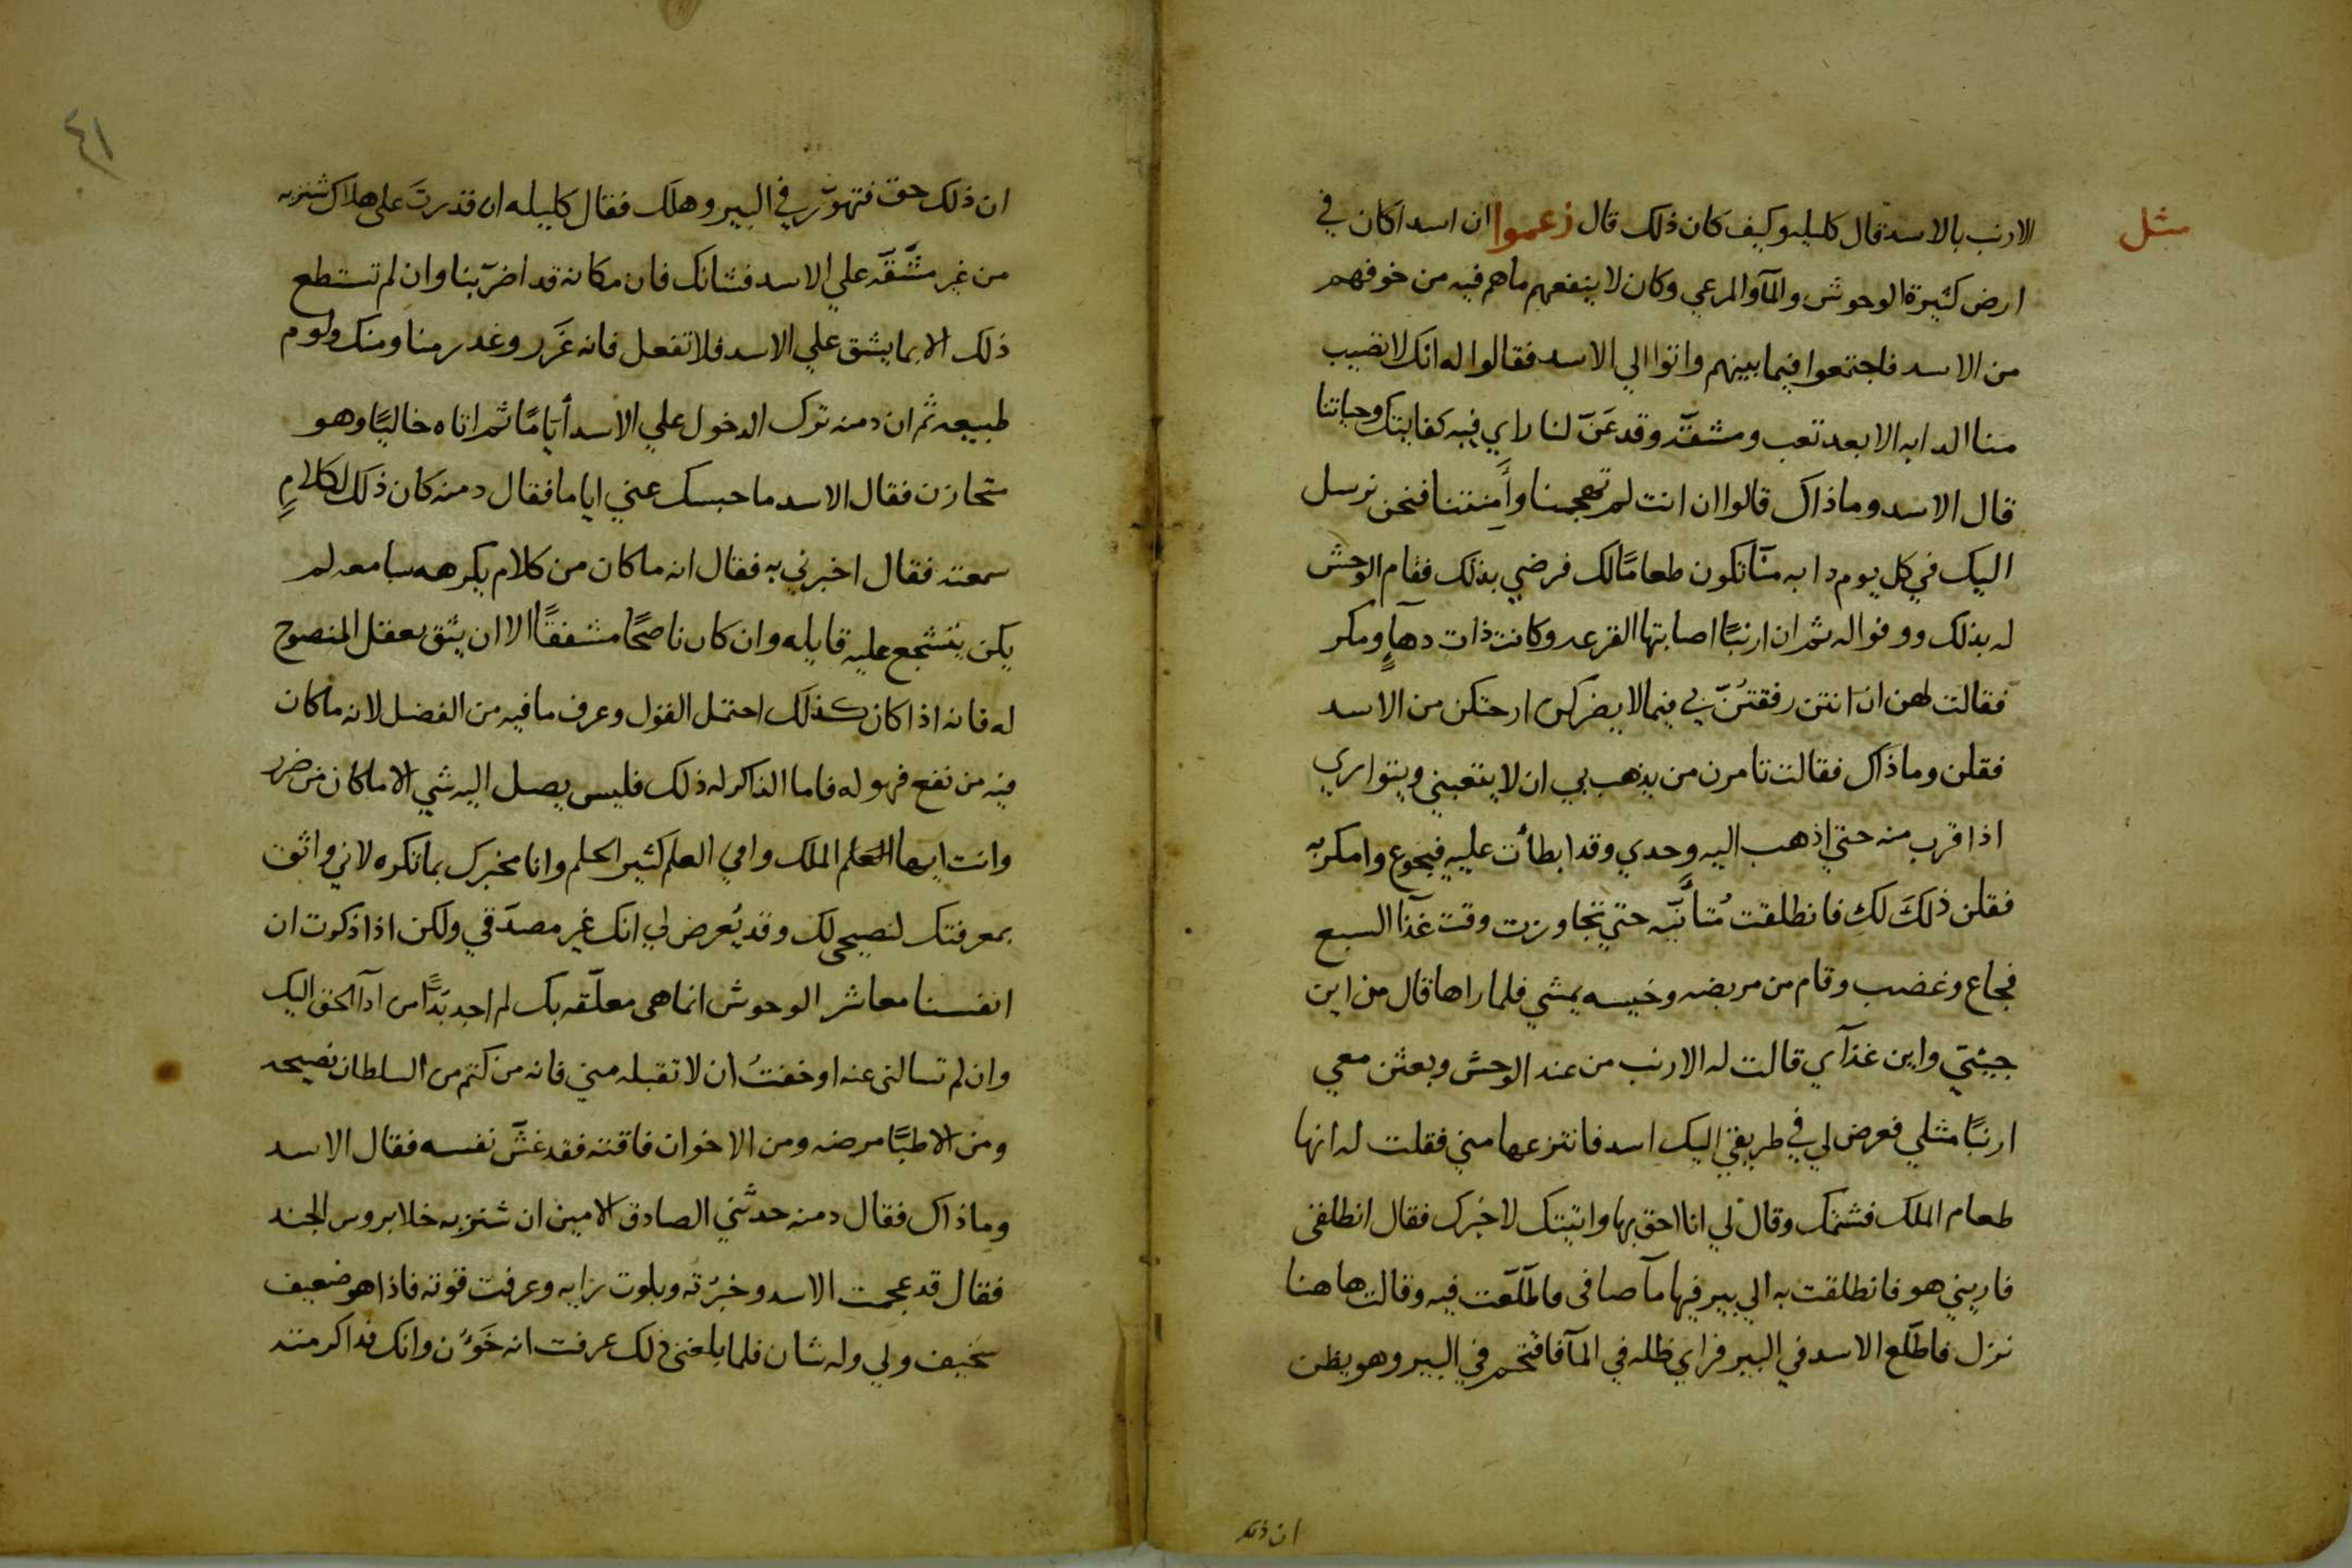 مثل
الارنب بالاسد قال كليله وكيف كان ذلك قال زعموا ان اسدا كان في
ارض كثيرة الوحوش والمآ والمرعي وكان لا ينفعهم ماهم فيه من خوفهم
من الاسد فاجتمعوا فيما بينهم واتوا الي الاسد فقالوا له انك لا تصيب
منا الدابه الا بعد تعب ومشقّه وقد عَنّ لنا راي فيه كفايتك وحياتنا
قال الاسد وما ذاك قالوا ان انت لم تهجمنا وأَمِنتنا فنحن نرسل
اليك في كل يوم دابه منّا تكون طعامًا لك فرضي بذلك فقام الوحش
له بذلك ووفوا له ثم ان ارنبًا اصابتها القرعه وكانت ذات دهآءٍ ومكر
فقالت لهن ان انتن رفقتُنّ بي فيما لا يضركن ارحتكن من الاسد
فقلن وما ذاك فقالت تامرن من يذهب بي ان لا يتعبني ويتواري
اذا قرب منه حتي اذهب اليه وحدي وقد ابطأت عليه فيجوع وامكر به
فقلن ذلكَ لكِ فانطلقت مُتأنّيه حتي تجاوزت وقت غذآ السبع
فجاع وغضب وقام من مربضه وخيسه يمشي فلما راها قال من اين
جيتي واين غذآي قالت له الارنب من عند الوحش وبعثن معي
ارنبًا مثلي فعرض لي في طريقي اليك اسد فانتزعها مني فقلت له انها
طعام الملك فشتمك وقال لي انا احق بها واتيتك لاخبرك فقال انطلقي
فاريني هو فانطلقت به الي بير فيها مآ صافي فاطّلعت فيه وقالت هاهنا
نزل فاطّلع الاسد في البير فراي ظله في المآ فاقتحم في البير وهو يظن
ان ذلك
٤١
ان ذلك حق فتهوّر في البير وهلك فقال كليله ان قدرتَ علي هلاك شنزبه
من غير مشّقّه علي الاسد فشانك فان مكانه قد اضرّ بنا وان لم تستطع
ذلك الا بما يشق علي الاسد فلا تفعل فانه غَرَر وغدر منا ومنك ولوم
طبيعه ثم ان دمنه ترك الدخول علي الاسد أيّامًا ثم اتاه خاليًا وهو
متحازن فقال الاسد ما حبسك عني اياما فقال دمنه كان ذلك لكلامٍ
سمعته فقال اخبرني به فقال انه ما كان من كلام يكرهه سامعه لم
يكن يتشجع عليه قايله وان كان ناصحًا مشفقًا الا ان يثق بعقل المنصوح
له فانه اذا كان كذلك احتمل القول وعرف ما فيه من الفضل لانه ما كان
فيه من نفع فهو له فاما الذاكر له ذلك فليس يصل اليه شي الا ما كان من ضرر
وانت ايها الملك وافي العلم كثير الحلم وانا مخبرك بما تكره لاني واثق
بمعرفتك لنصيحي لك وقد يُعرض لي انك غير مصدّقي ولكن اذا ذكرت ان
انفسنا معاشر الوحوش انما هي معلّقه بك لم اجد بُدًّا من ادآ الحق اليك
وان لم تسالني عنه او خفتُ ان لا تقبله مني فانه من كتم من السلطان نصيحه
ومن الاطبّا مرضه ومن الاخوان فاقته فقد غشّ نفسه فقال الاسد
وما ذاك فقال دمنه حدثّني الصادق الامين ان شنزبه خلا بروس الجند
فقال قد عجمت الاسد وخبرُته وبلوت رايه وعرفت قوته فاذا هو ضعيف
سخيف ولي وله شان فلما بلغني ذلك عرفت انه خَوُن وانك قد اكرمته